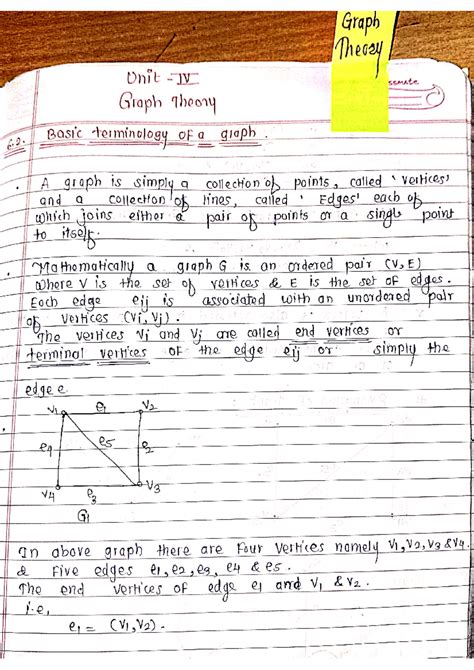 Graph
Theory
Unit - IV
Graph Theory
Basic terminology of a graph.
A graph is simply a collection of points, called 'vertices'
and a collection of lines, called 'Edges' each of
which joins either a pair of points or a single point
to itself.
Mathematically a graph G is an ordered pair (V, E)
where V is the set of vertices & E is the set of edges.
Each edge eij is associated with an unordered pair
of vertices (Vi, Vj).
The vertices Vi and Vj are called end vertices or
terminal vertices of the edge eij or simply the
edge e.
V1 e1 V2
e4 e5 e2
V4 e3 V3
G1
In above graph there are Four vertices namely V1, V2, V3 & V4
& Five edges e1, e2, e3, e4 & e5.
The end vertices of edge e1 and V1 & V2.
i.e,
e1 = (V1, V2).